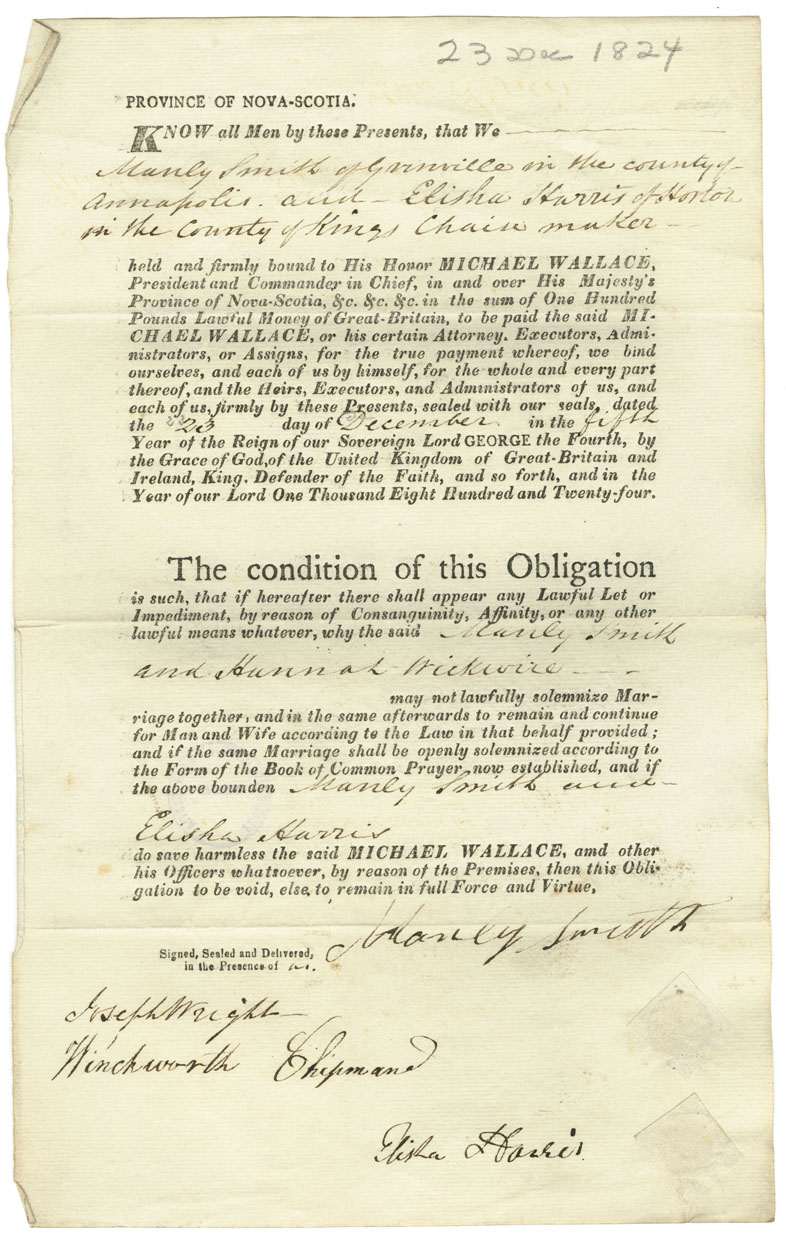 23 Dec 1824
PROVINCE OF NOVA-SCOTIA.
KNOW all Men by these Presents, that We
Manly Smith of Grenville in the county of
Annapolis. and - Elisha Harris of Horton
in the County of Kings Chair maker -
held and firmly bound to His Honor MICHAEL WALLACE,
President and Commander in Chief, in and over His Majesty's
Province of Nova-Scotia, &c. &c. &c. in the sum of One Hundred
Pounds Lawful Money of Great-Britain, to be paid the said MI-
CHAEL WALLACE, or his certain Attorney. Executors, Admi-
nistrators, or Assigns, for the true payment whereof, we bind
ourselves, and each of us by himself, for the whole and every part
thereof, and the Heirs, Executors, and Administrators of us, and
each of us, firmly by these Presents, sealed with our seals, dated
the 23 day of December in the fifth
Year of the Reign of our Sovereign Lord GEORGE the Fourth, by
the Grace of God, of the United Kingdom of Great-Britain and
Ireland, King. Defender of the Faith, and so forth, and in the
Year of our Lord One Thousand Eight Hundred and Twenty-four.
The condition of this Obligation
is such, that if hereafter there shall appear any Lawful Let or
Impediment, by reason of Consanguinity, Affinity, or any other
lawful means whatever, why the said Manly Smith
and Hannah Wickwire - -
may not lawfully solemnize Mar-
riage together, and in the same afterwards to remain and continue
for Man and Wife according to the Law in that behalf provided;
and if the same Marriage shall be openly solemnized according to
the Form of the Book of Common Prayer now established, and if
the above bounden Manly Smith and -
Elisha Harris
do save harmless the said MICHAEL WALLACE, amd other
his Officers whatsoever, by reason of the Premises, then this Obli-
gation to be void, else, to remain in full Force and Virtue,
Manly Smith
Signed, Sealed and Delivered,
in the Presence of
Joseph Wright -
Winckworth Chipman
Elisha Harris